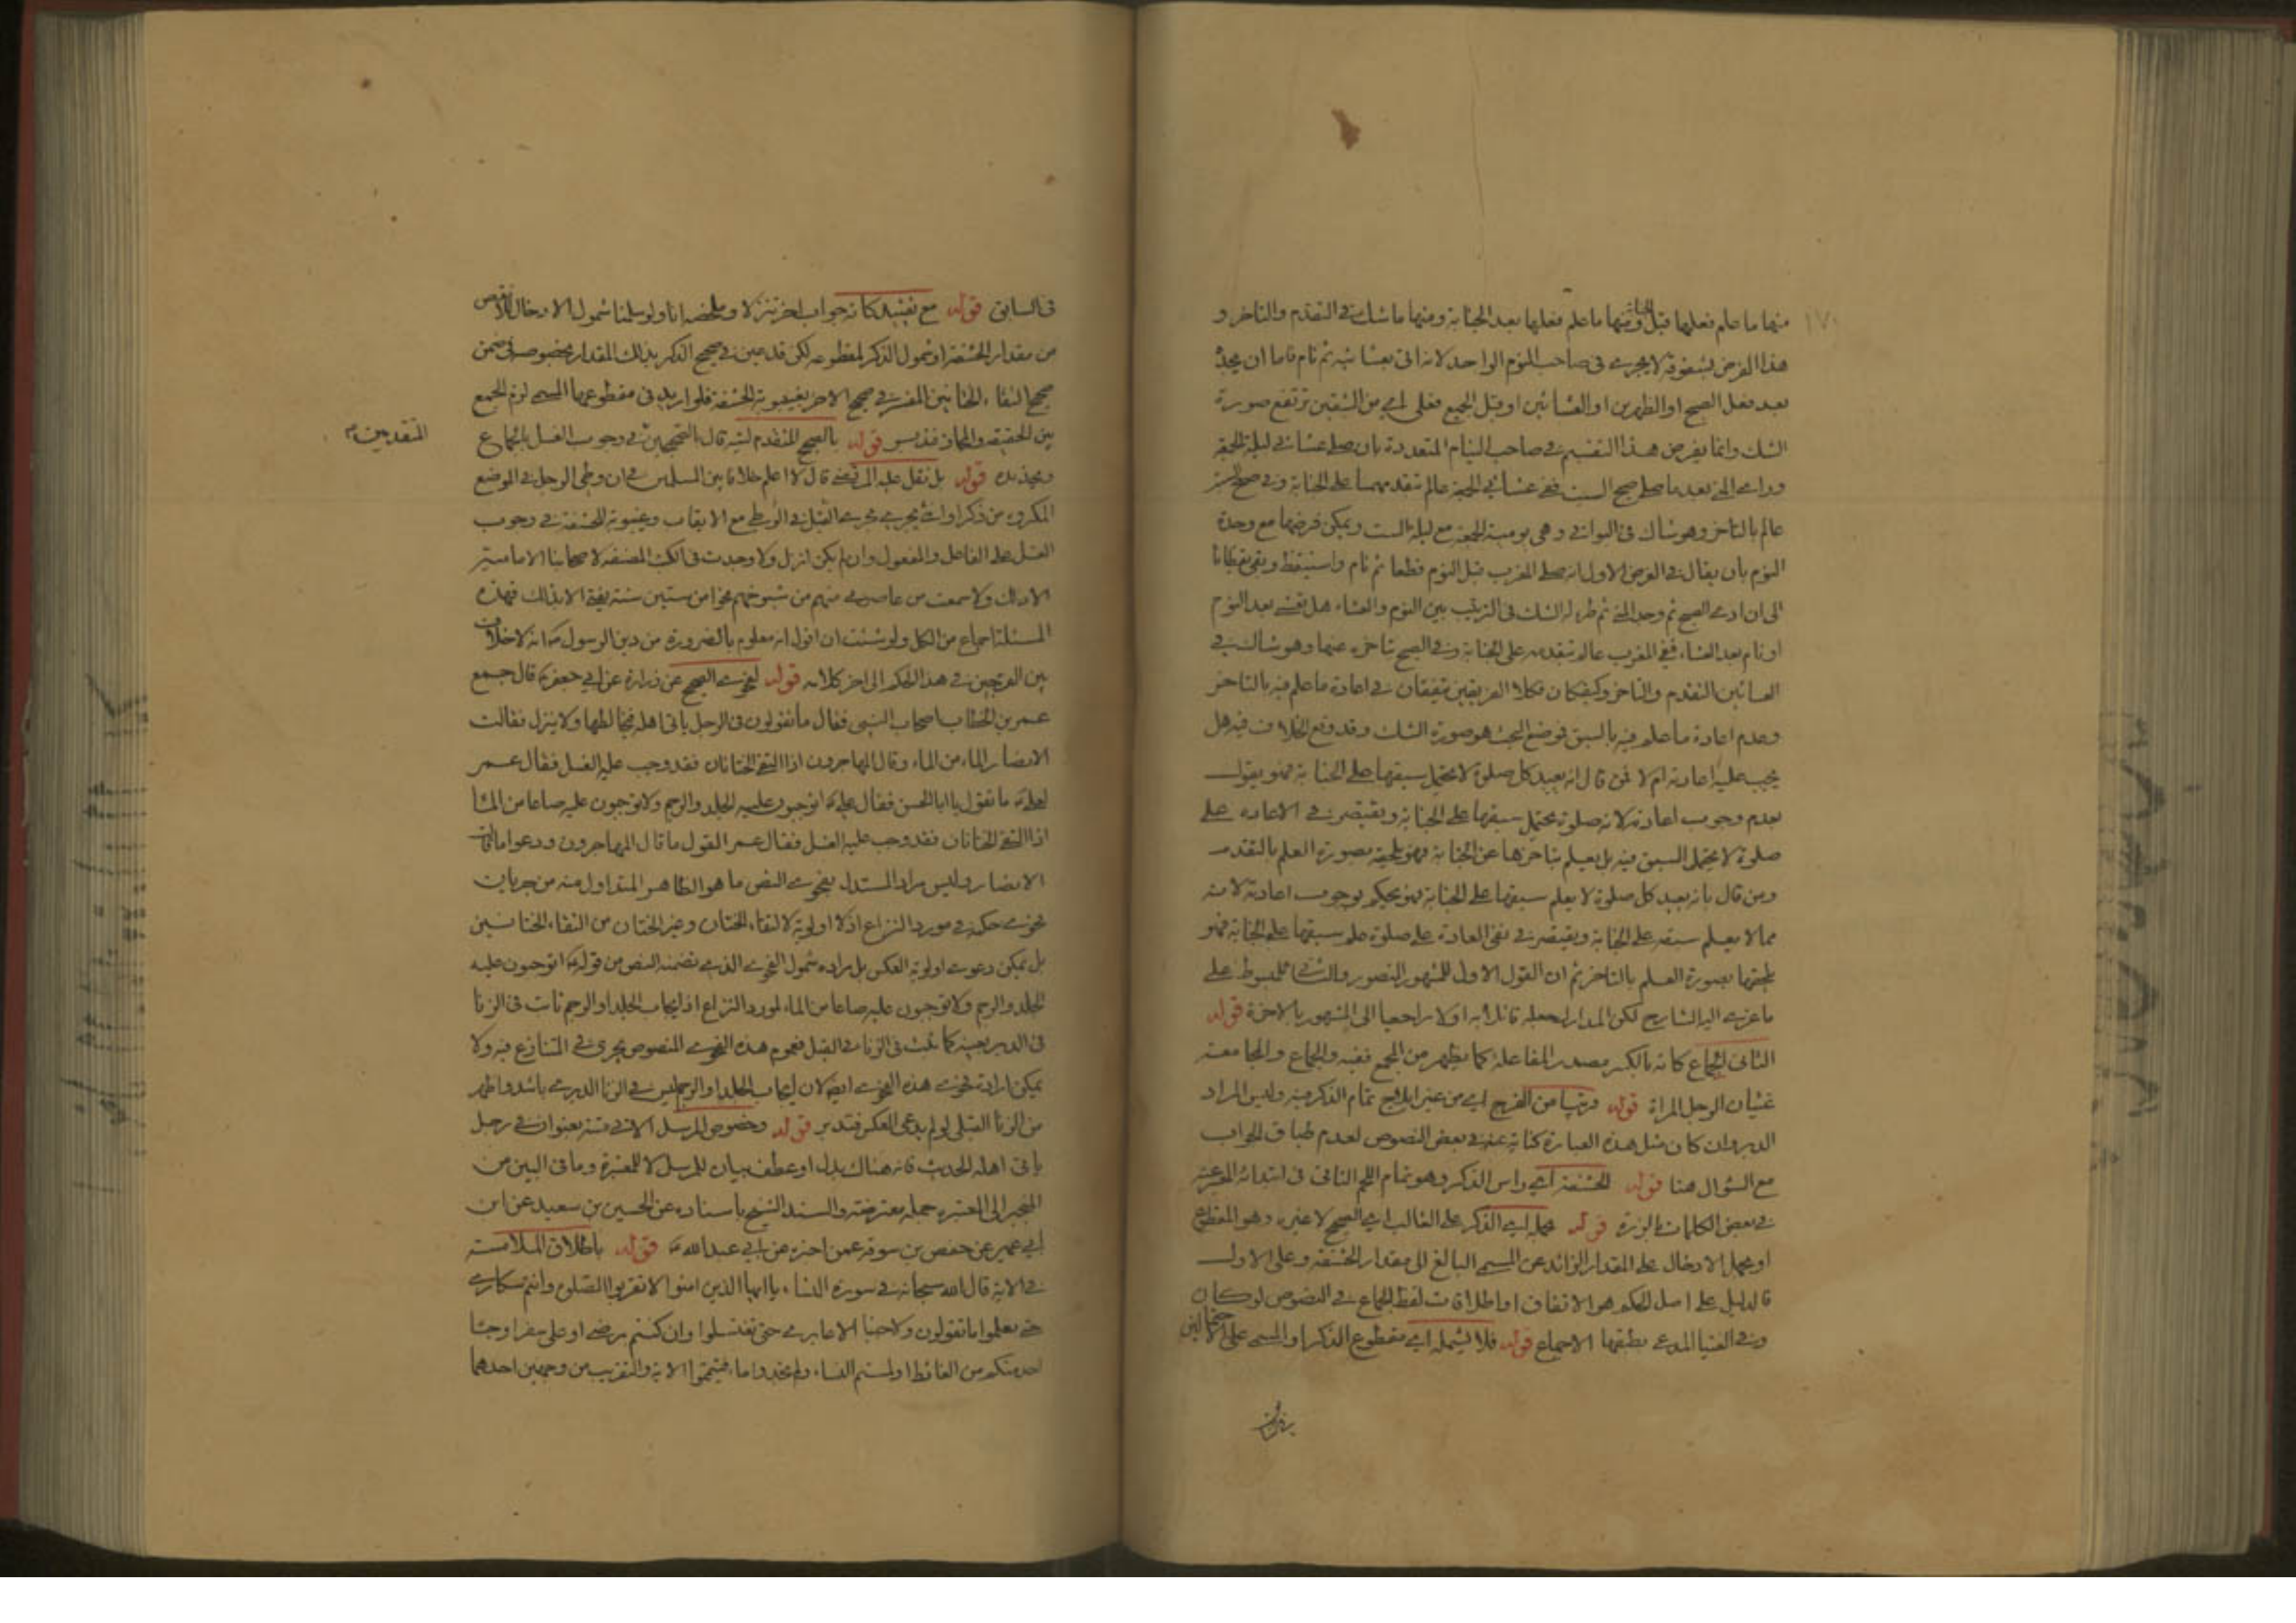 منها ما علم فعلها قبل الجنابة ومنها ما علم فعلها بعد الجنابة ومنها ما شك في التقدم والتاخر و
هذا الفرض بشقوقه لا يجرى في صاحب النوم الواحد لانه اتى بعشائيه ثم نام فاما ان يجد
بعد فعل الصبح او الظهرين او العشائين او قبل الجميع فعلى اي من الشقين ترتفع صورة
الشك وانما يفرض هذا التقسيم في صاحب النيام المتعددة بان صلى عشائي ليلة الجمعة
وراى المني بعد ما صلى صبح السبت ففي عشائي الجمعة عالم بتقدمهما على الجنابة وفي صبح السبت
عالم بالتاخر وهو شاك في البواقي وهي يومية الجمعة مع ليلة السبت ويمكن فرضها مع وحدة
النوم بان يقال في الفرض الاول انه صلى المغرب قبل النوم قطعا ثم نام واستيقظ وبقى يقظانا
الى ان ادى الصبح ثم وجد المني ثم طرء له الشك في الترتيب بين النوم والعشاء هل تعشى بعد النوم
او نام بعد العشاء ففي المغرب عالم بتقدمه على الجنابة وفي الصبح بتاخره عنها وهو شاك في
العشائين التقدم والتاخر وكيفكان فكلا الفريقين متفقان في اعادة ما علم فيه بالتاخر
وعدم اعادة ما علم فيه بالسبق فموضع البحث هو صورة الشك وقد وقع الخلاف فيه هل
يجب عليه اعادته ام لا فمن قال انه يعيد كل صلوة لا يحتمل سبقها على الجنابة فهو يقول
بعدم وجوب اعادته لانه صلوة يحتمل سبقها على الجنابة ويقتصر في الاعاده على
صلوة لا يحتمل السبق فيه بل يعلم بتاخرها عن الجنابة فهو يلحقه بصورة العلم بالتقدم
ومن قال بانه يعيد كل صلوة لا يعلم سبقها على الجنابة فهو يحكم بوجوب اعادته لانه
مما لا يعلم سبقه على الجنابة ويقتصر في نفى العادة على صلوة علم سبقها على الجنابة فهو
يلحقها بصورة العلم بالتاخر ثم ان القول الاول للمشهور المنصور والثاني للمبسوط على
ما عزى اليه الشارح لكن المدارك جعله قائلا به اولا راجعا الى المشهور بالاخرة قوله
الثاني الجماع كانه بالكسر مصدر المفاعلة كما يظهر من المجمع ففيه والجماع والمجامعة
غشيان الرجل المراة قوله قريبا من الفرج اي من غير ايلاج تمام الذكر فيه وليس المراد
الدبر وان كان مثل هذه العبارة كناية عنه في بعض النصوص لعدم طباق الجواب
مع السؤال هنا قوله الحشفة اي راس الذكر وهو تمام اللحم الناتي في ابتدائه
في بعض الكلمات قوله حمله اي الذكر على الغالب اي الصحيح لا غيره وهو المقطوع
او يحمل الادخال على المقدار الزائد عن المسمى البالغ الى مقدار الحشفة وعلى الاول
فالدليل على اصل الحكم هو الاتفاق او اطلاقات لفظ الجماع في النصوص لو كان
وفي الفتيا المدعى بطبقها الاجماع قوله فلا يشمله اي مقطوع الذكر او المسمى على
في السابق قوله مع تقييد كانه جواب اخر تنزلا وملخصه انا ولو سلمنا شمول الادخال للانقص
من مقدار الحشفة او شمول الذكر لمقطوعه لكن قد مر في صحيح الذكر بذلك المقدار بخصوصه في ضمن
صحح التقاء الختانين المفسر في صحيح الاخر بغيبوبة الحشفة فلو اريد في مقطوعها المسمى لزم الجمع
بين الحقيقه والمجاز فتدبر قوله بالصحيح المتقدم فيه قال بالصحيحين في وجوب الغسل بالجماع
المتقدمين
قوله بل نقل عليه المرتضى قال لا اعلم خلافا بين المسلمين في ان وطى الرجل في الموضع
المكروه من ذكر او انثى يجرى مجرى القبل في الوطى مع الايقاب وغيبوبة الحشفة في وجوب
الغسل على الفاعل والمفعول وان لم يكن انزل ولا وجدت في الكتب المصنفه لاصحابنا الاماميه
الا ذلك ولا سمعت من عاصرنى منهم من شيوخهم نحوا من ستين سنة يفتى الا بذلك فهذه
المسئلة اجماع من الكل ولو شئت ان اقول انه معلوم بالضرورة من دين الرسول انه لا خلاف
بين الفرجين في هذا الحكم الى اخر كلامه قوله لفحوى الصحيح عن زرارة عن ابي جعفر قال جمع
عمر بن الخطاب اصحاب النبى فقال ما تقولون في الرجل ياتى اهله فيخالطها ولا ينزل فقالت
الانصار الماء من الماء وقال المهاجرون اذا التقى الختانان فقد وجب عليه الغسل فقال عمر
لعلى ما تقول يا ابا الحسن فقال على اتوجبون عليه الجلد والرجم ولا توجبون عليه صاعا من الماء
اذا التقى الختانان فقد وجب عليه الغسل فقال عمر القول ما قال المهاجرون ودعوا ما قالت
الانصار وليس مراد المستدل بفحوى النص ما هو الظاهر المتداول منه من جريان
فحوى حكمه في مورد النزاع اذ لا اولوية لالتقاء الختان وغير الختان من التقاء الختانين
بل يمكن دعوى اولوية العكس بل مراده شمول الفحوى الذى تضمنه النص من قوله اتوجبون عليه
الجلد والرجم ولا توجبون عليه صاعا من الماء لمورد النزاع اذ ايجاب الجلد او الرجم ثابت في الزنا
في الدبر بعينه كما ثبت في الزنا في القبل فعموم هذه الفحوى المنصوص يجرى في المتنازع فيه ولا
يمكن ارادة فحوى هذه الفحوى ايضا لان ايجاب الجلد او الرجم ليس في الزنا الدبرى باشد واظهر
من الزنا القبلى لو لم يدعى العكس فتدبر قوله وخصوص المرسل الاتى متنه بعنوان في رجل
ياتى اهله الحديث فانه هناك بدل او عطف بيان للمرسل لا للمعتبرة وما في البين من
المنجبر الى المعتبره جملة معترضة والسند الشيخ باسناده عن الحسين بن سعيد عن ابن
ابي عمير عن حفص بن سوقه عمن اخبره عن ابي عبد الله قوله باطلاق الملامسة
في الاية قال الله سبحانه في سورة النساء يا ايها الذين امنوا لا تقربوا الصلوة وانتم سكارى
حتى تعلموا ما تقولون ولا جنبا الا عابرى حتى تغتسلوا وان كنتم مرضى او على سفر او جاء
احد منكم من الغائط او لمستم النساء ولم تجدوا ماء فتيمموا الاية والتقريب من وجهين احدهما